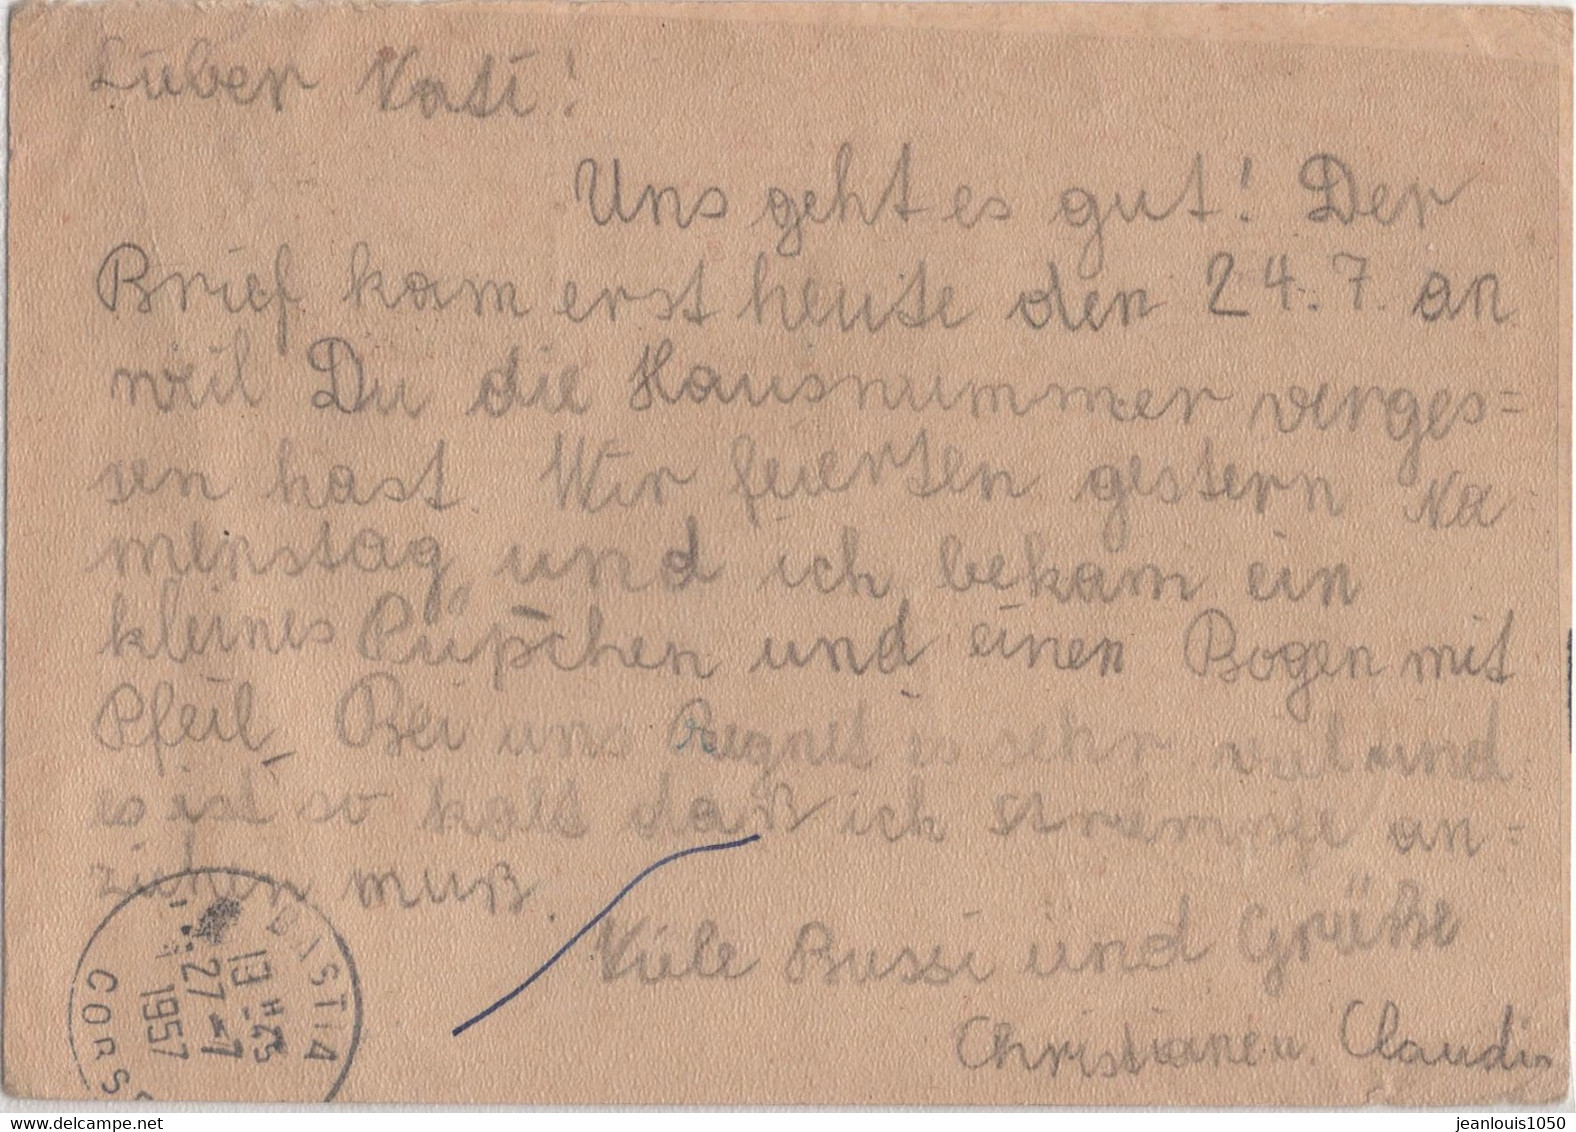 Lieber Vati!
Uns geht es gut! Der
Brief kam erst heute den 24.7. an
weil Du die Hausnummer verges=
sen hast. Wir feierten gestern Na
menstag und ich bekam ein
kleines Püpchen und einen Bogen mit
Pfeil. Bei uns Regnet es sehr viel und
es ist so kalt daß ich Strümpfe an=
ziehen muß.
Viele Bussi und Grüße
Christiane u. Claudia
BASTIA
13 H 45
27 - 7
1957
CORS
jeanlouis1050